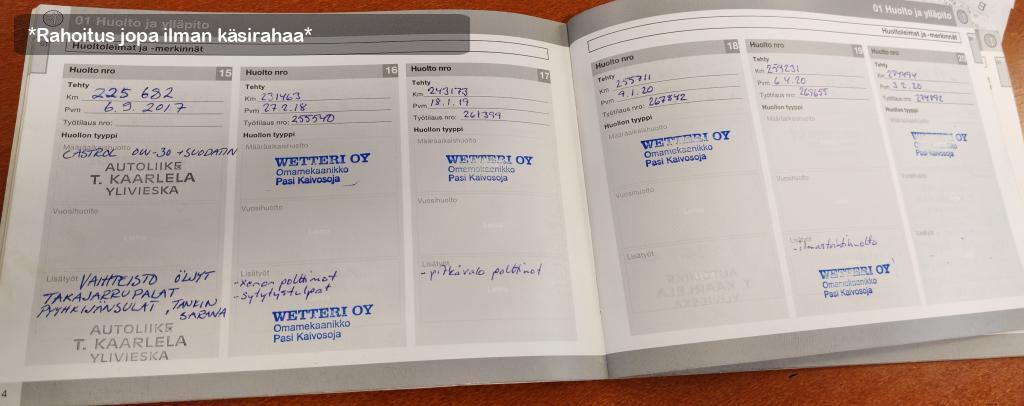 *Rahoitus jopa ilman käsirahaa*
01 Huolto ja ylläpito
Huoltoleimat ja -merkinnät
Huolto nro 15
Tehty
Km 225 682
Pvm 6.9.2017
Työtilaus nro:
Huollon tyyppi
Määräaikaishuolto
CASTROL 0W-30 + SUODATIN
AUTOLIIKE
T. KAARLELA
YLIVIESKA
Vuosihuolto
Lisätyöt
VAIHTEISTO ÖLJYT
TAKAJARRUPALAT
PYYHKIJÄNSULAT, TANKIN
SARANA
AUTOLIIKE
T. KAARLELA
YLIVIESKA
4
Huolto nro 16
Tehty
Km 231463
Pvm 27.2.18
Työtilaus nro: 255540
Huollon tyyppi
Määräaikaishuolto
WETTERI OY
Omamekaanikko
Pasi Kaivosoja
Vuosihuolto
Lisätyöt
-xenon polttimot
-sytytystulpat
WETTERI OY
Omamekaanikko
Pasi Kaivosoja
Huolto nro 17
Tehty
Km 243173
Pvm 18.1.19
Työtilaus nro: 261399
Huollon tyyppi
Määräaikaishuolto
WETTERI OY
Omamekaanikko
Pasi Kaivosoja
Vuosihuolto
Lisätyöt
- pitkävalo polttimot
01 Huolto ja ylläpito
Huoltoleimat ja -merkinnät
Huolto nro 18
Tehty
Km 255711
Pvm 9.1.20
Työtilaus nro: 267842
Huollon tyyppi
Määräaikaishuolto
WETTERI OY
Omamekaanikko
Pasi Kaivosoja
Vuosihuolto
Lisätyöt
Huolto nro 19
Tehty
Km 259231
Pvm 6.4.20
Työtilaus nro: 269655
Huollon tyyppi
Määräaikaishuolto
Vuosihuolto
Lisätyöt
-ilmastointihuolto
WETTERI OY
Omamekaanikko
Pasi Kaivosoja
Huolto nro 20
Tehty
Km
Pvm
Työtilaus nro: 274892
Huollon tyyppi
Määräaikaishuolto
WETTERI OY
Omamekaanikko
Pasi Kaivosoja
Vuosihuolto
Lisätyöt